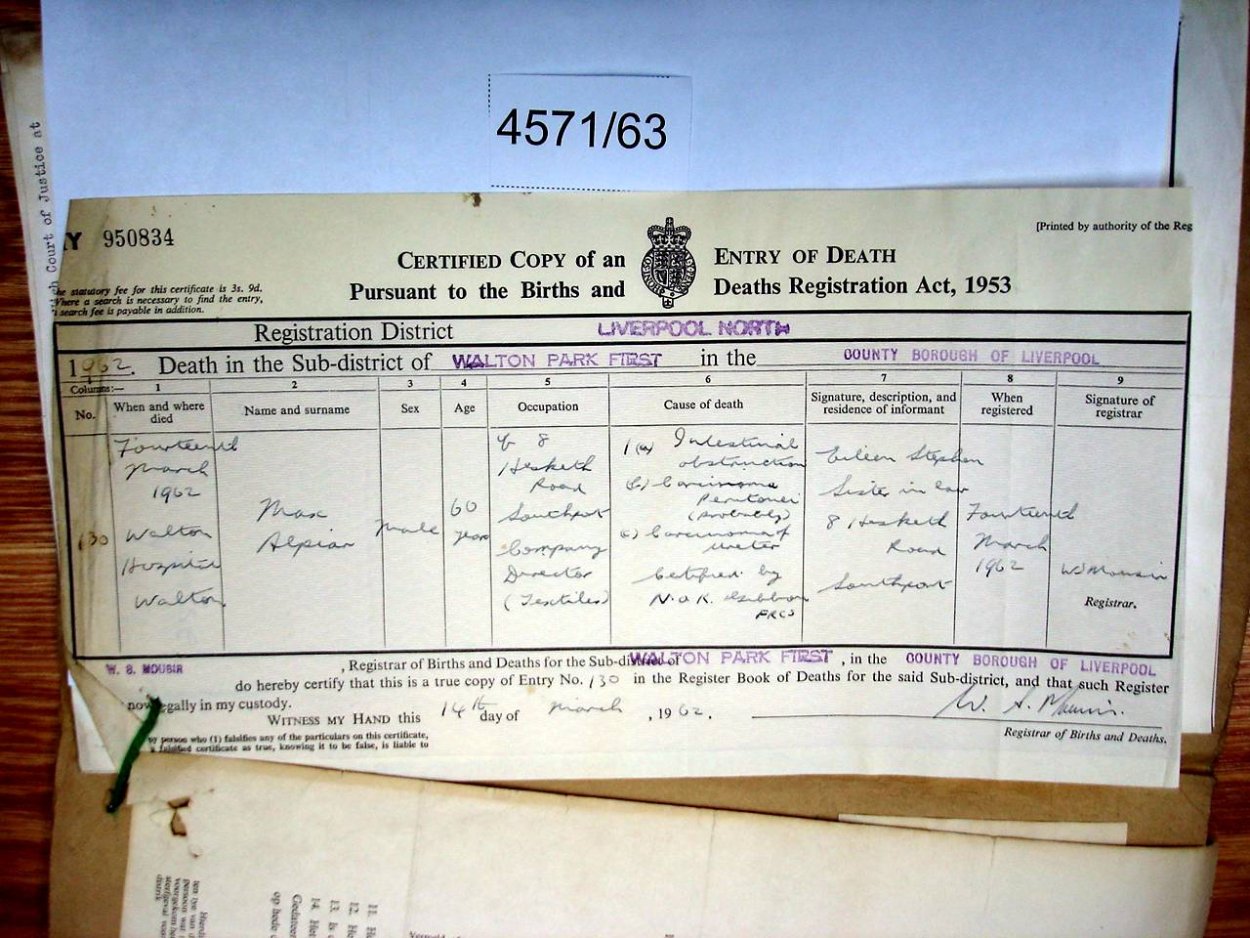 4571/63
Court of Justice at
Y 950834
[Printed by authority of the Reg
CERTIFIED COPY of an ENTRY OF DEATH
Pursuant to the Births and Deaths Registration Act, 1953
he statutory fee for this certificate is 3s. 9d.
Where a search is necessary to find the entry,
search fee is payable in addition.
Registration District LIVERPOOL NORTH
1962. Death in the Sub-district of WALTON PARK FIRST in the COUNTY BOROUGH OF LIVERPOOL
Columns:— 1 2 3 4 5 6 7 8 9
No. When and where died Name and surname Sex Age Occupation Cause of death Signature, description, and residence of informant When registered Signature of registrar
130
Fourteenth
March
1962
Walton
Hospital
Walton
Max
Alpian
Male
60
years
8
Hesketh
Road
Southport
Company
Director
(Textiles)
1(a) Intestinal
obstruction
(b) Carcinoma
Peritonei
(probably)
c) Carcinoma of
Certified by
FRCS
Eileen Stephen
Sister in law
8 Hesketh
Road
Southport
Fourteenth
March
1962
Registrar.
W. S. MOUSIR , Registrar of Births and Deaths for the Sub-district of WALTON PARK FIRST , in the COUNTY BOROUGH OF LIVERPOOL
do hereby certify that this is a true copy of Entry No. 130 in the Register Book of Deaths for the said Sub-district, and that such Register
now legally in my custody.
WITNESS MY HAND this 14th day of March , 1962.
Registrar of Births and Deaths.
person who (1) falsifies any of the particulars on this certificate,
a falsified certificate as true, knowing it to be false, is liable to
11.
12.
13.
14.
op hede